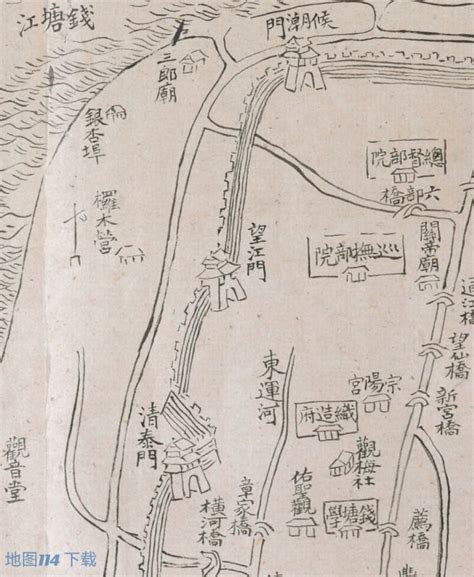 錢塘江
候潮門
三郎廟
銀杏埠
總督部院
六部橋
欏木營
望江門
關帝廟
巡撫部院
通江橋
望仙橋
東運河
宗陽宮
新宮橋
織造府
清泰門
觀梅社
觀音堂
章家橋
橫河橋
佑聖觀
錢塘學
薦橋
地图114 下载